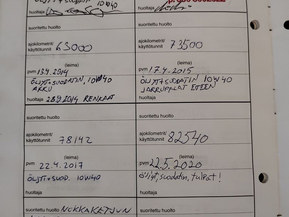 huoltaja
huoltaja
suoritettu huolto
suoritettu huolto
ajokilometrit/
käyttötunnit 63000
ajokilometrit/
käyttötunnit 73500
(leima)
(leima)
pvm 13.9.2014
pvm 17.4.2015
ÖLJYT+SUODATIN, 10W40
AKKU
ÖLJYT+SUODATIN 10W40
JARRUPALAT ETEEN
huoltaja 28.9.2014 RENKAAT
huoltaja
suoritettu huolto
suoritettu huolto
ajokilometrit/
käyttötunnit 78142
ajokilometrit/
käyttötunnit 82540
(leima)
(leima)
pvm 22.4.2017
pvm 22.5.2020
ÖLJYT+SUOD. 10W40
öljyt, suodatin, tulpat!
huoltaja
huoltaja
suoritettu huolto
suoritettu huolto